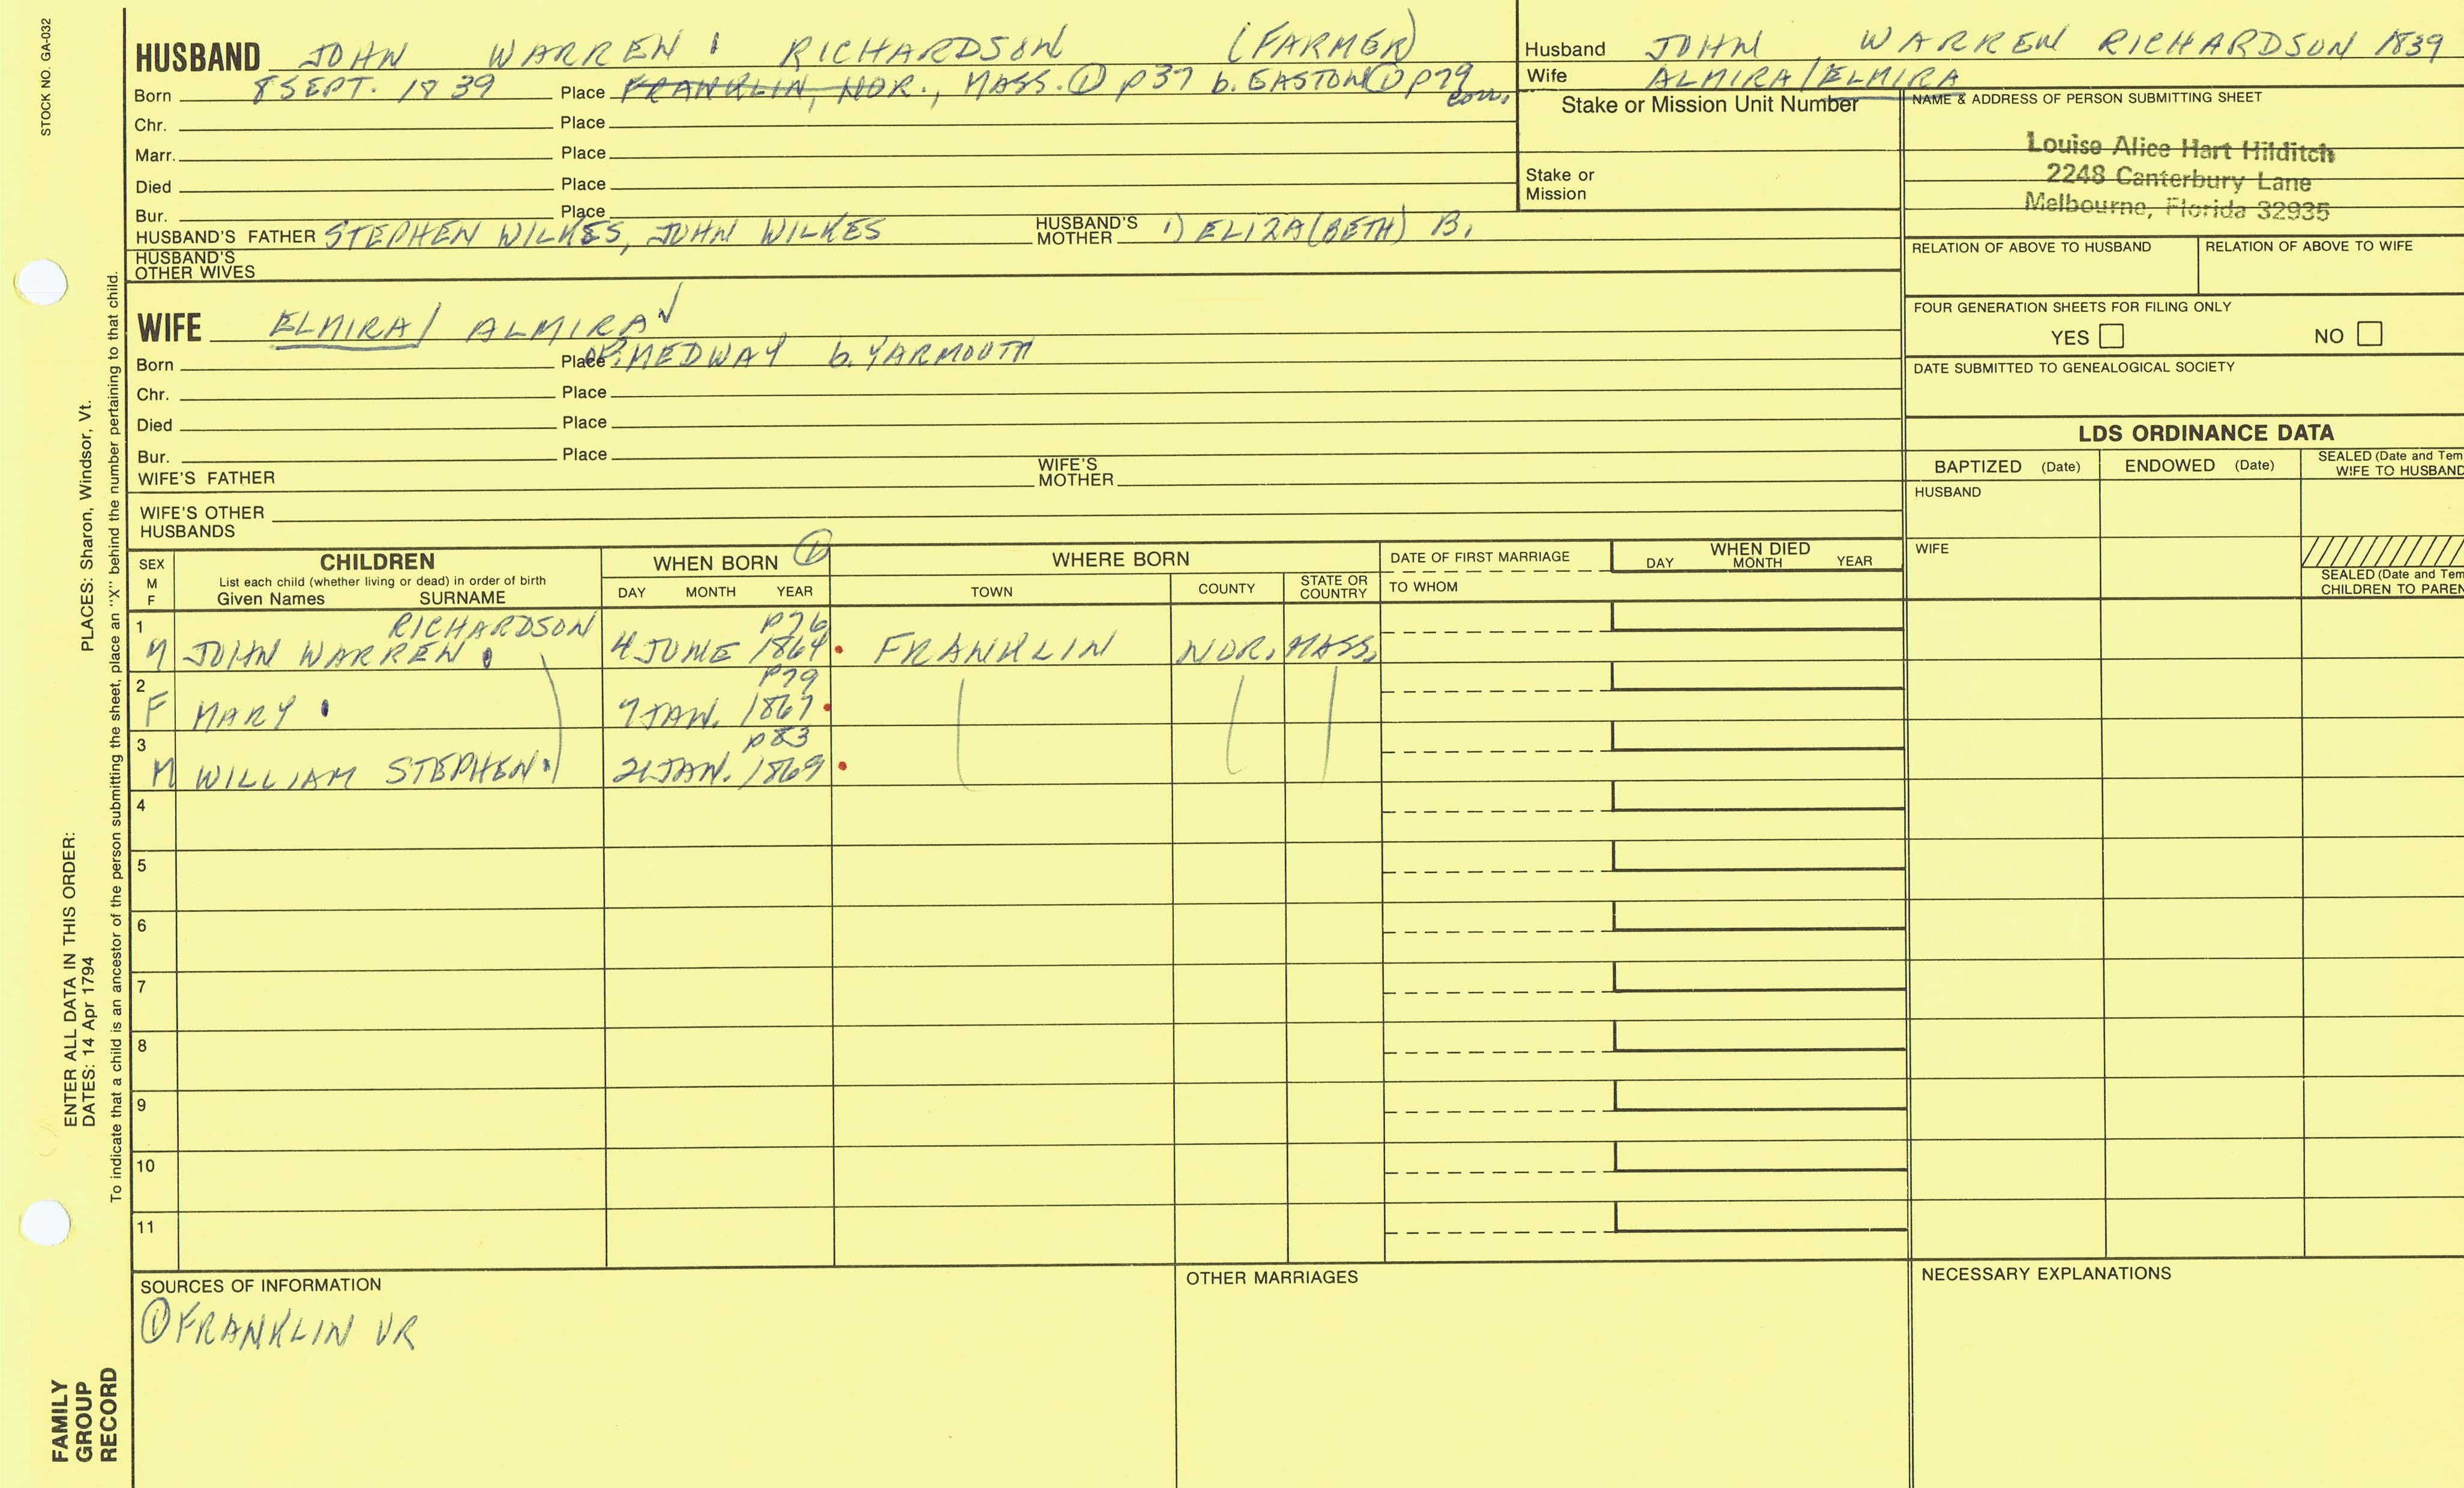 STOCK NO. GA-032
HUSBAND JOHN WARREN RICHARDSON (FARMER)
Born 8 SEPT. 1839 Place FRANKLIN, NOR., MASS. ① p37 b. EASTON ① p79
Chr. Place
Marr. Place
Died Place
Bur. Place
HUSBAND'S FATHER STEPHEN WILKES, JOHN WILKES HUSBAND'S MOTHER 1) ELIZA(BETH) B.
HUSBAND'S OTHER WIVES
WIFE ELMIRA/ ALMIRA
Born Place OF: MEDWAY b. YARMOUTH
Chr. Place
Died Place
Bur. Place
WIFE'S FATHER WIFE'S MOTHER
WIFE'S OTHER HUSBANDS
Husband JOHN WARREN RICHARDSON 1839
Wife ALMIRA/ELMIRA
Stake or Mission Unit Number
Stake or Mission
NAME & ADDRESS OF PERSON SUBMITTING SHEET
Louise Alice Hart Hilditch
2248 Canterbury Lane
Melbourne, Florida 32935
RELATION OF ABOVE TO HUSBAND RELATION OF ABOVE TO WIFE
FOUR GENERATION SHEETS FOR FILING ONLY
YES NO
DATE SUBMITTED TO GENEALOGICAL SOCIETY
LDS ORDINANCE DATA
BAPTIZED (Date) ENDOWED (Date) SEALED (Date and Tem
WIFE TO HUSBAND
HUSBAND
WIFE
SEALED (Date and Tem
CHILDREN TO PAREN
SEX M F CHILDREN WHEN BORN ① WHERE BORN DATE OF FIRST MARRIAGE WHEN DIED
List each child (whether living or dead) in order of birth
Given Names SURNAME DAY MONTH YEAR TOWN COUNTY STATE OR COUNTRY TO WHOM DAY MONTH YEAR
1 RICHARDSON p76
M JOHN WARREN 4 JUNE 1864 FRANKLIN NOR. MASS.
2 p79
F MARY 7 JAN. 1867
3 p83
M WILLIAM STEPHEN 21 JAN. 1869
4
5
6
7
8
9
10
11
SOURCES OF INFORMATION
① FRANKLIN VR
OTHER MARRIAGES
NECESSARY EXPLANATIONS
ENTER ALL DATA IN THIS ORDER:
DATES: 14 Apr 1794 PLACES: Sharon, Windsor, Vt.
To indicate that a child is an ancestor of the person submitting the sheet, place an "X" behind the number pertaining to that child.
FAMILY
GROUP
RECORD